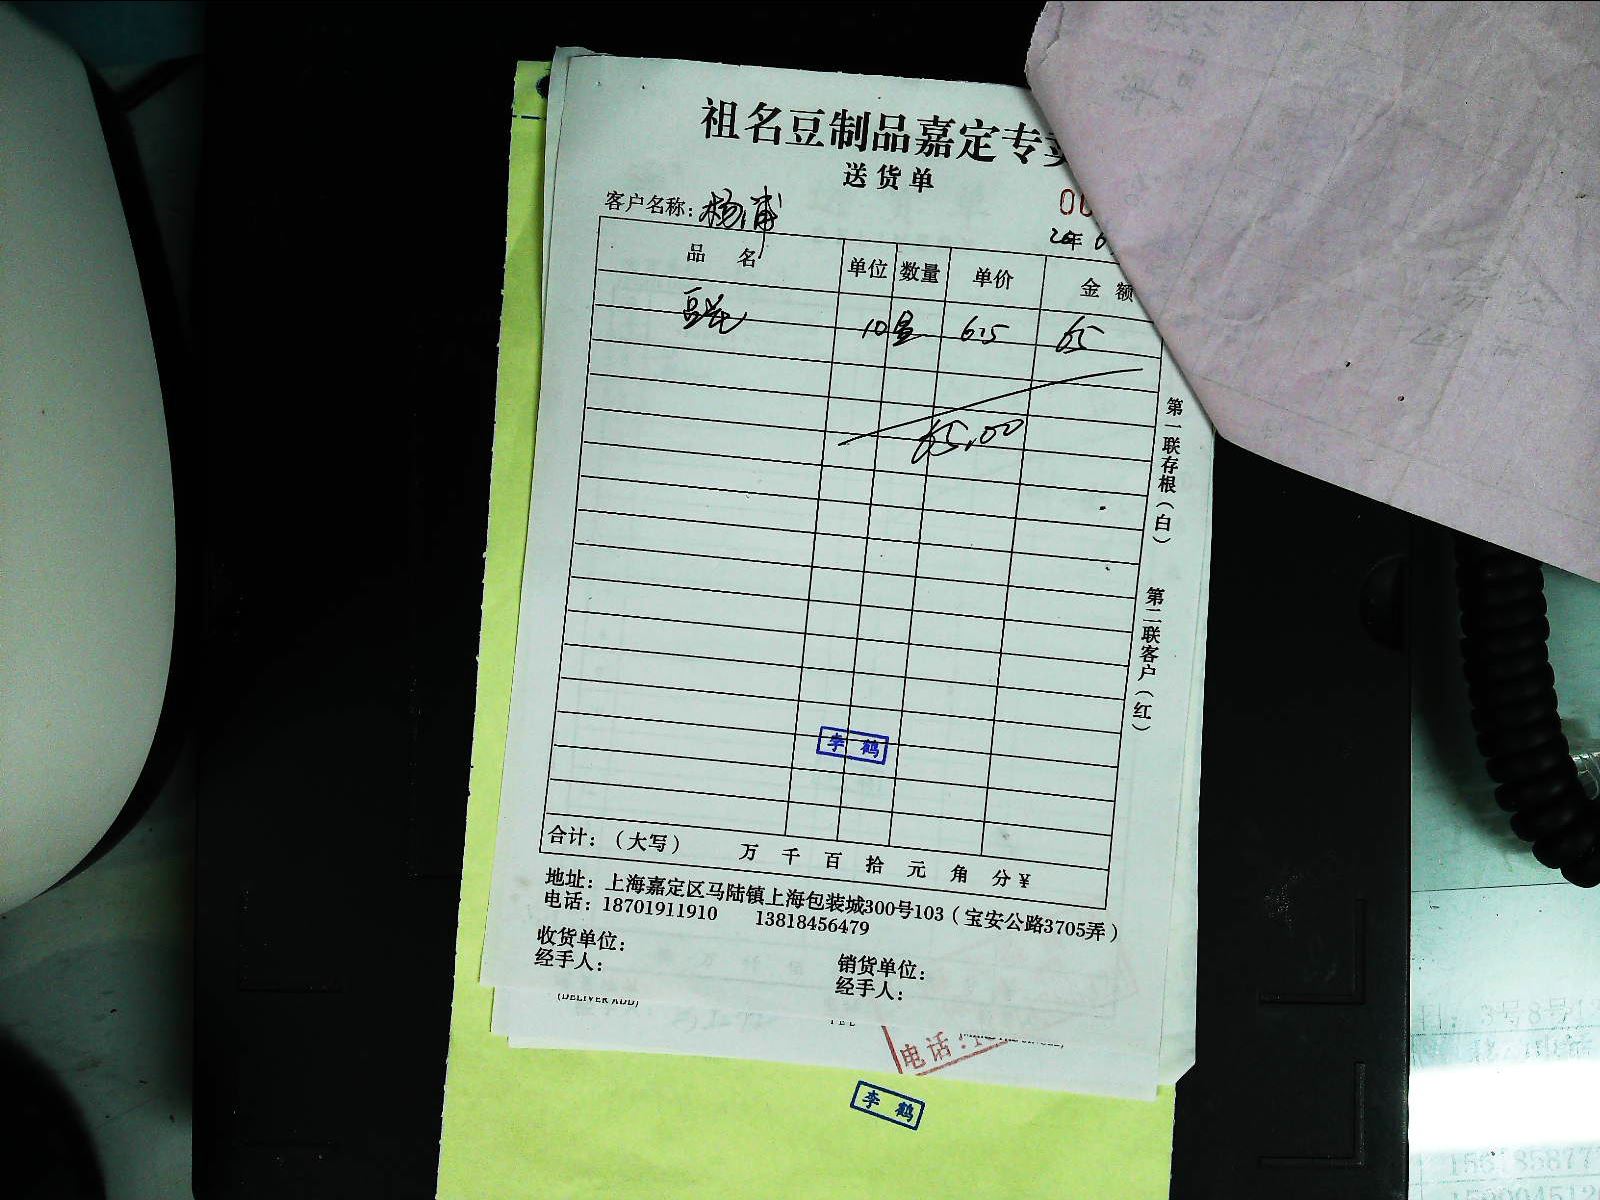 祖名豆制品嘉定专卖
送货单
客户名称：杨浦
00
20年 6
品 名 单位 数量 单价 金 额
豆花 10盒 6.5 65
65.00
第一联存根（白）
第二联客户（红）
李鹤
合计：（大写） 万 千 百 拾 元 角 分¥
地址：上海嘉定区马陆镇上海包装城300号103（宝安公路3705弄）
电话：18701911910 13818456479
收货单位：
销货单位：
经手人：
经手人：
(DELIVER ADD)
TEL
电话：1
李鹤